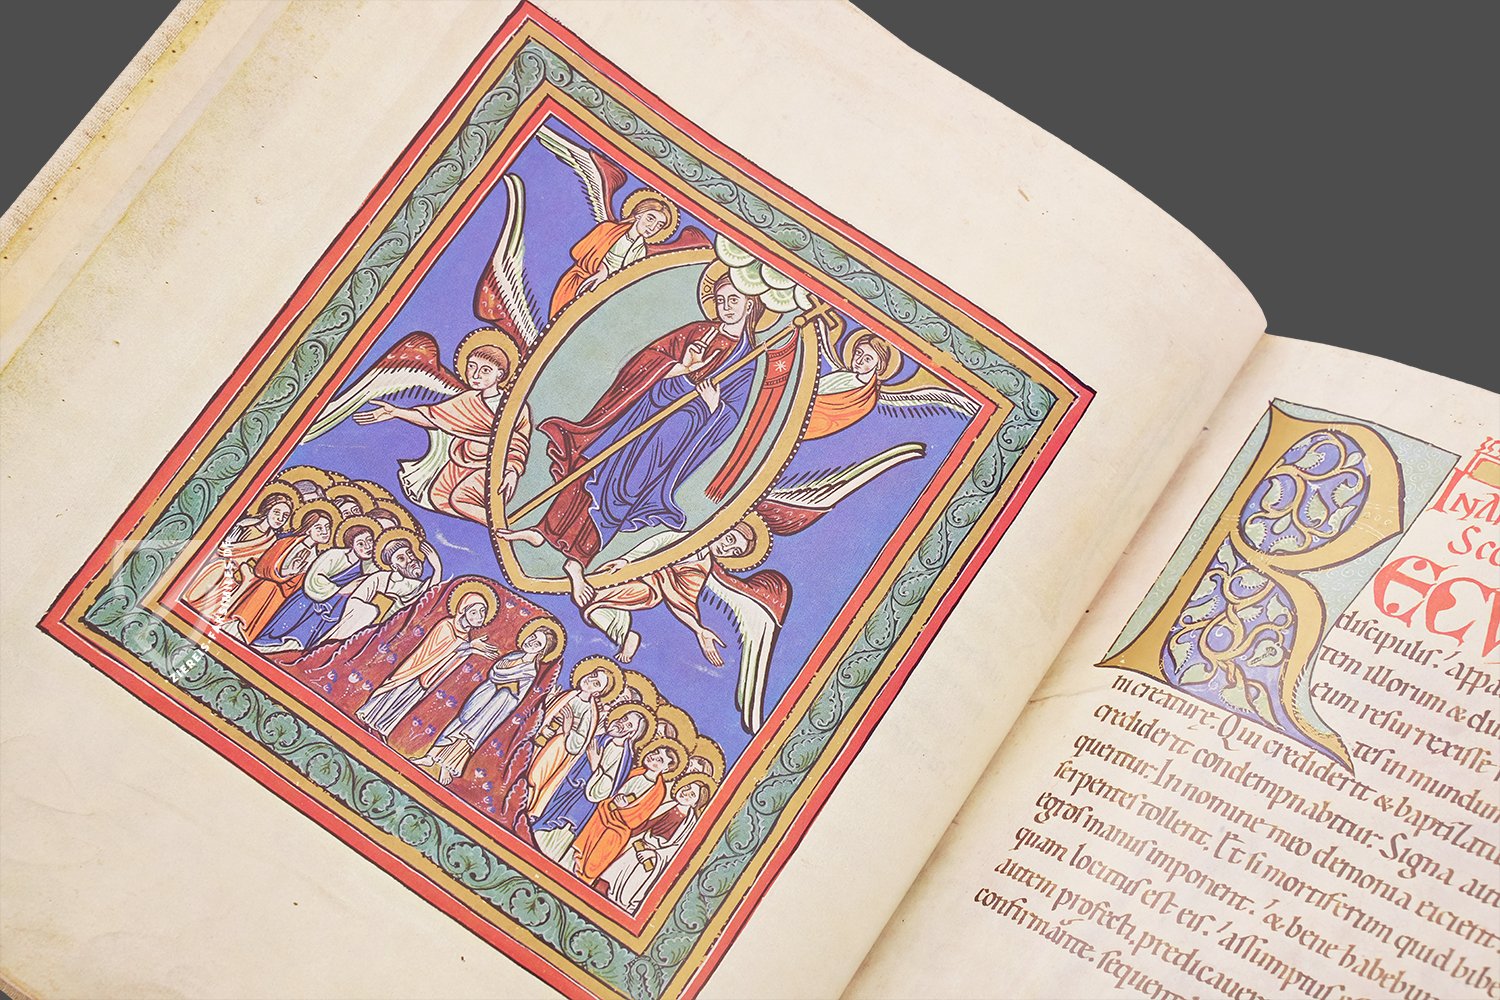 INA
SCO
RECV
discipulis. appa
tem illorum & du
eum resurrexisse
tes in mundum
ni creature. Qui crediderit & baptizatu
crediderit condempnabitur. Signa aute
quentur. In nomine meo demonia eicient.
serpentes tollent. Et si mortiferum quid bibe
egros manus imponent. & bene habebun
quam locutus est eis. assumptus
autem profecti. predicauer
confirmante. sequent
ZIEREIS